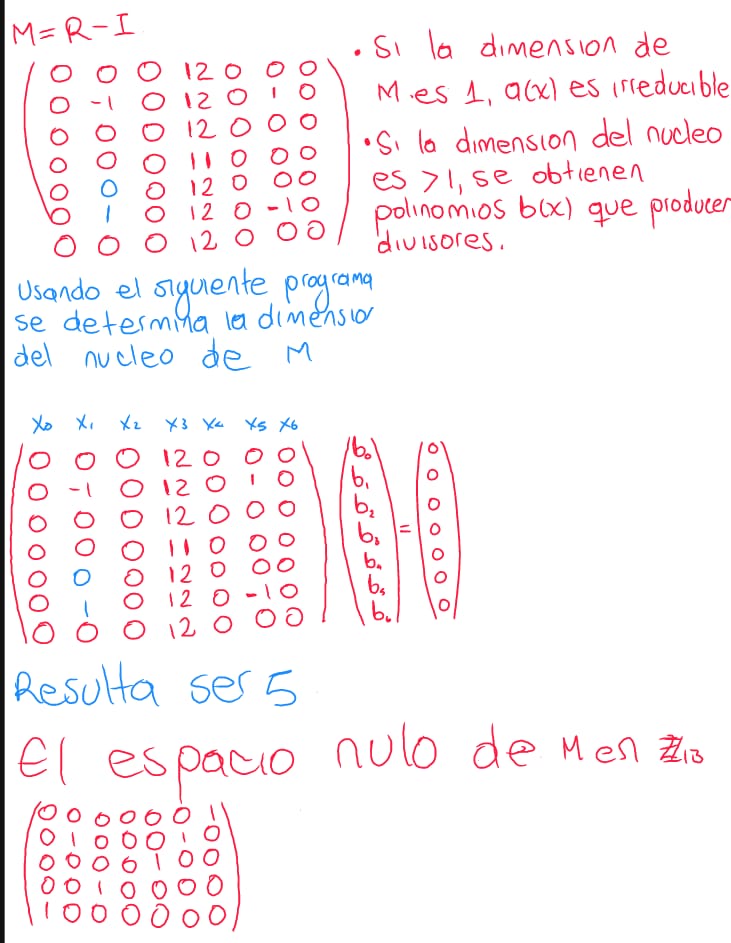 M=R-I
0 0 0 12 0 0 0
0 -1 0 12 0 1 0
0 0 0 12 0 0 0
0 0 0 11 0 0 0
0 0 0 12 0 0 0
0 1 0 12 0 -1 0
0 0 0 12 0 0 0
• Si la dimension de
M es 1, a(x) es irreducible
• Si la dimension del nucleo
es >1, se obtienen
polinomios b(x) que producen
divisores.
Usando el siguiente programa
se determina la dimension
del nucleo de M
x₀ x₁ x₂ x₃ x₄ x₅ x₆
0 0 0 12 0 0 0 b₀ 0
0 -1 0 12 0 1 0 b₁ 0
0 0 0 12 0 0 0 b₂ 0
0 0 0 11 0 0 0 b₃ = 0
0 0 0 12 0 0 0 b₄ 0
0 1 0 12 0 -1 0 b₅ 0
0 0 0 12 0 0 0 b₆ 0
Resulta ser 5
El espacio nulo de M en ℤ₁₃
0 0 0 0 0 0 1
0 1 0 0 0 1 0
0 0 0 0 1 0 0
0 0 1 0 0 0 0
1 0 0 0 0 0 0